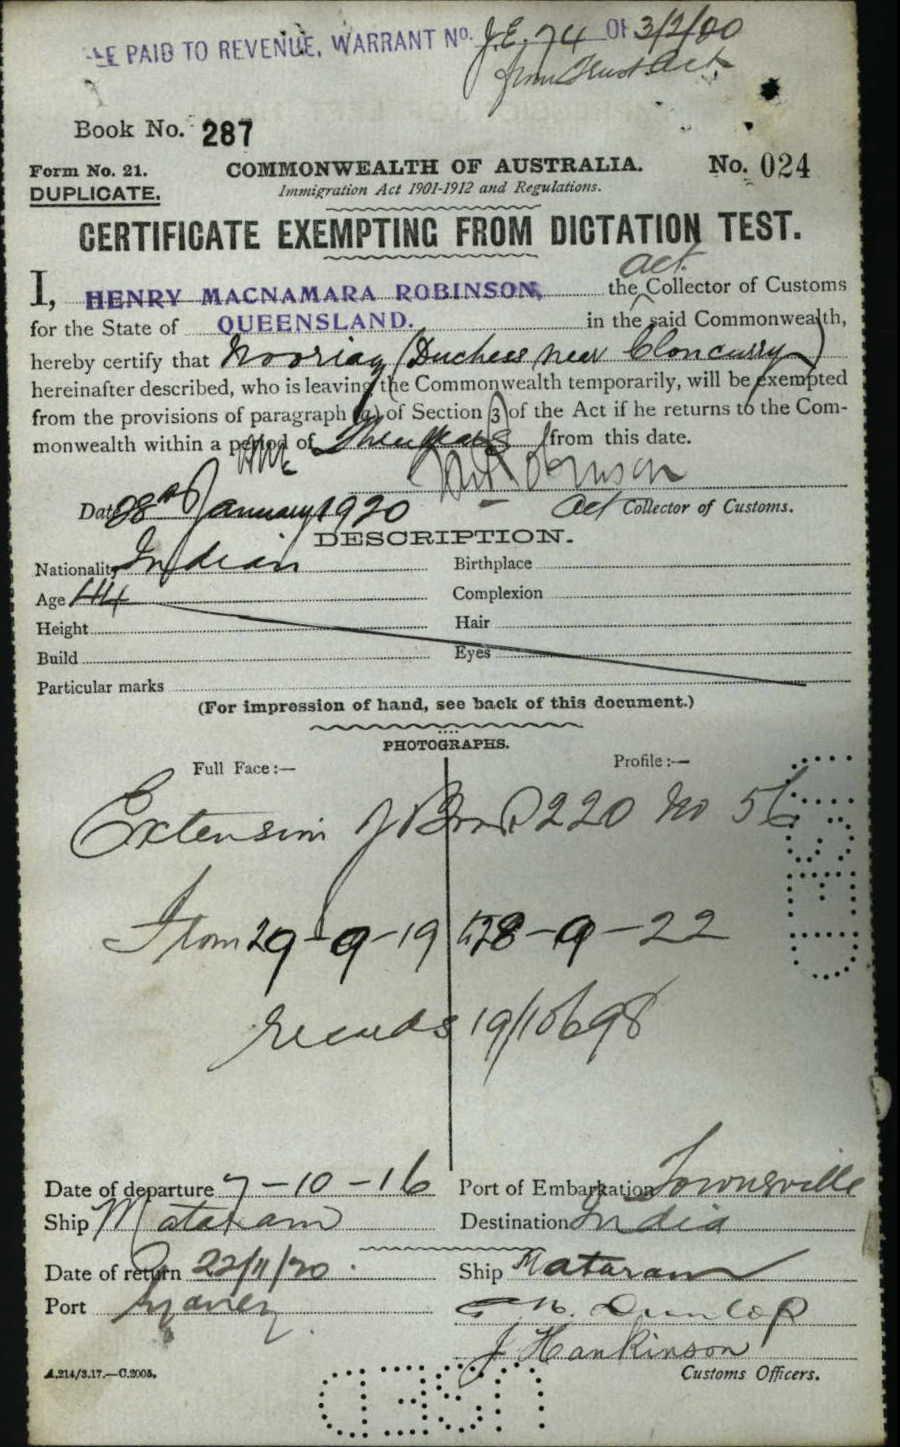 PAID TO REVENUE, WARRANT No. J.E. 74 OF 3/2/00
from Trust Act.
Book No. 287
Form No. 21. COMMONWEALTH OF AUSTRALIA. No. 024
DUPLICATE. Immigration Act 1901-1912 and Regulations.
CERTIFICATE EXEMPTING FROM DICTATION TEST.
act.
I, HENRY MACNAMARA ROBINSON, the Collector of Customs
for the State of QUEENSLAND. in the said Commonwealth,
hereby certify that Nooriag (Duchess near Cloncurry)
hereinafter described, who is leaving the Commonwealth temporarily, will be exempted
from the provisions of paragraph (a) of Section (3) of the Act if he returns to the Com-
monwealth within a period of Three years from this date.
Robinson
Date 28th January 1920 Act Collector of Customs.
DESCRIPTION.
Nationality Indian Birthplace
Age 44 Complexion
Height Hair
Build Eyes
Particular marks
(For impression of hand, see back of this document.)
PHOTOGRAPHS.
Full Face:— Profile:—
Extension of Book 220 No 56
From 29-9-19 to 28-9-22
records 19/10698
Date of departure 7-10-16 Port of Embarkation Townsville
Ship Mataram Destination India
Date of return 22/11/20. Ship Mataram
Port Sydney N. Dunlop
J Hankinson
A.214/3.17.—C.2005. Customs Officers.